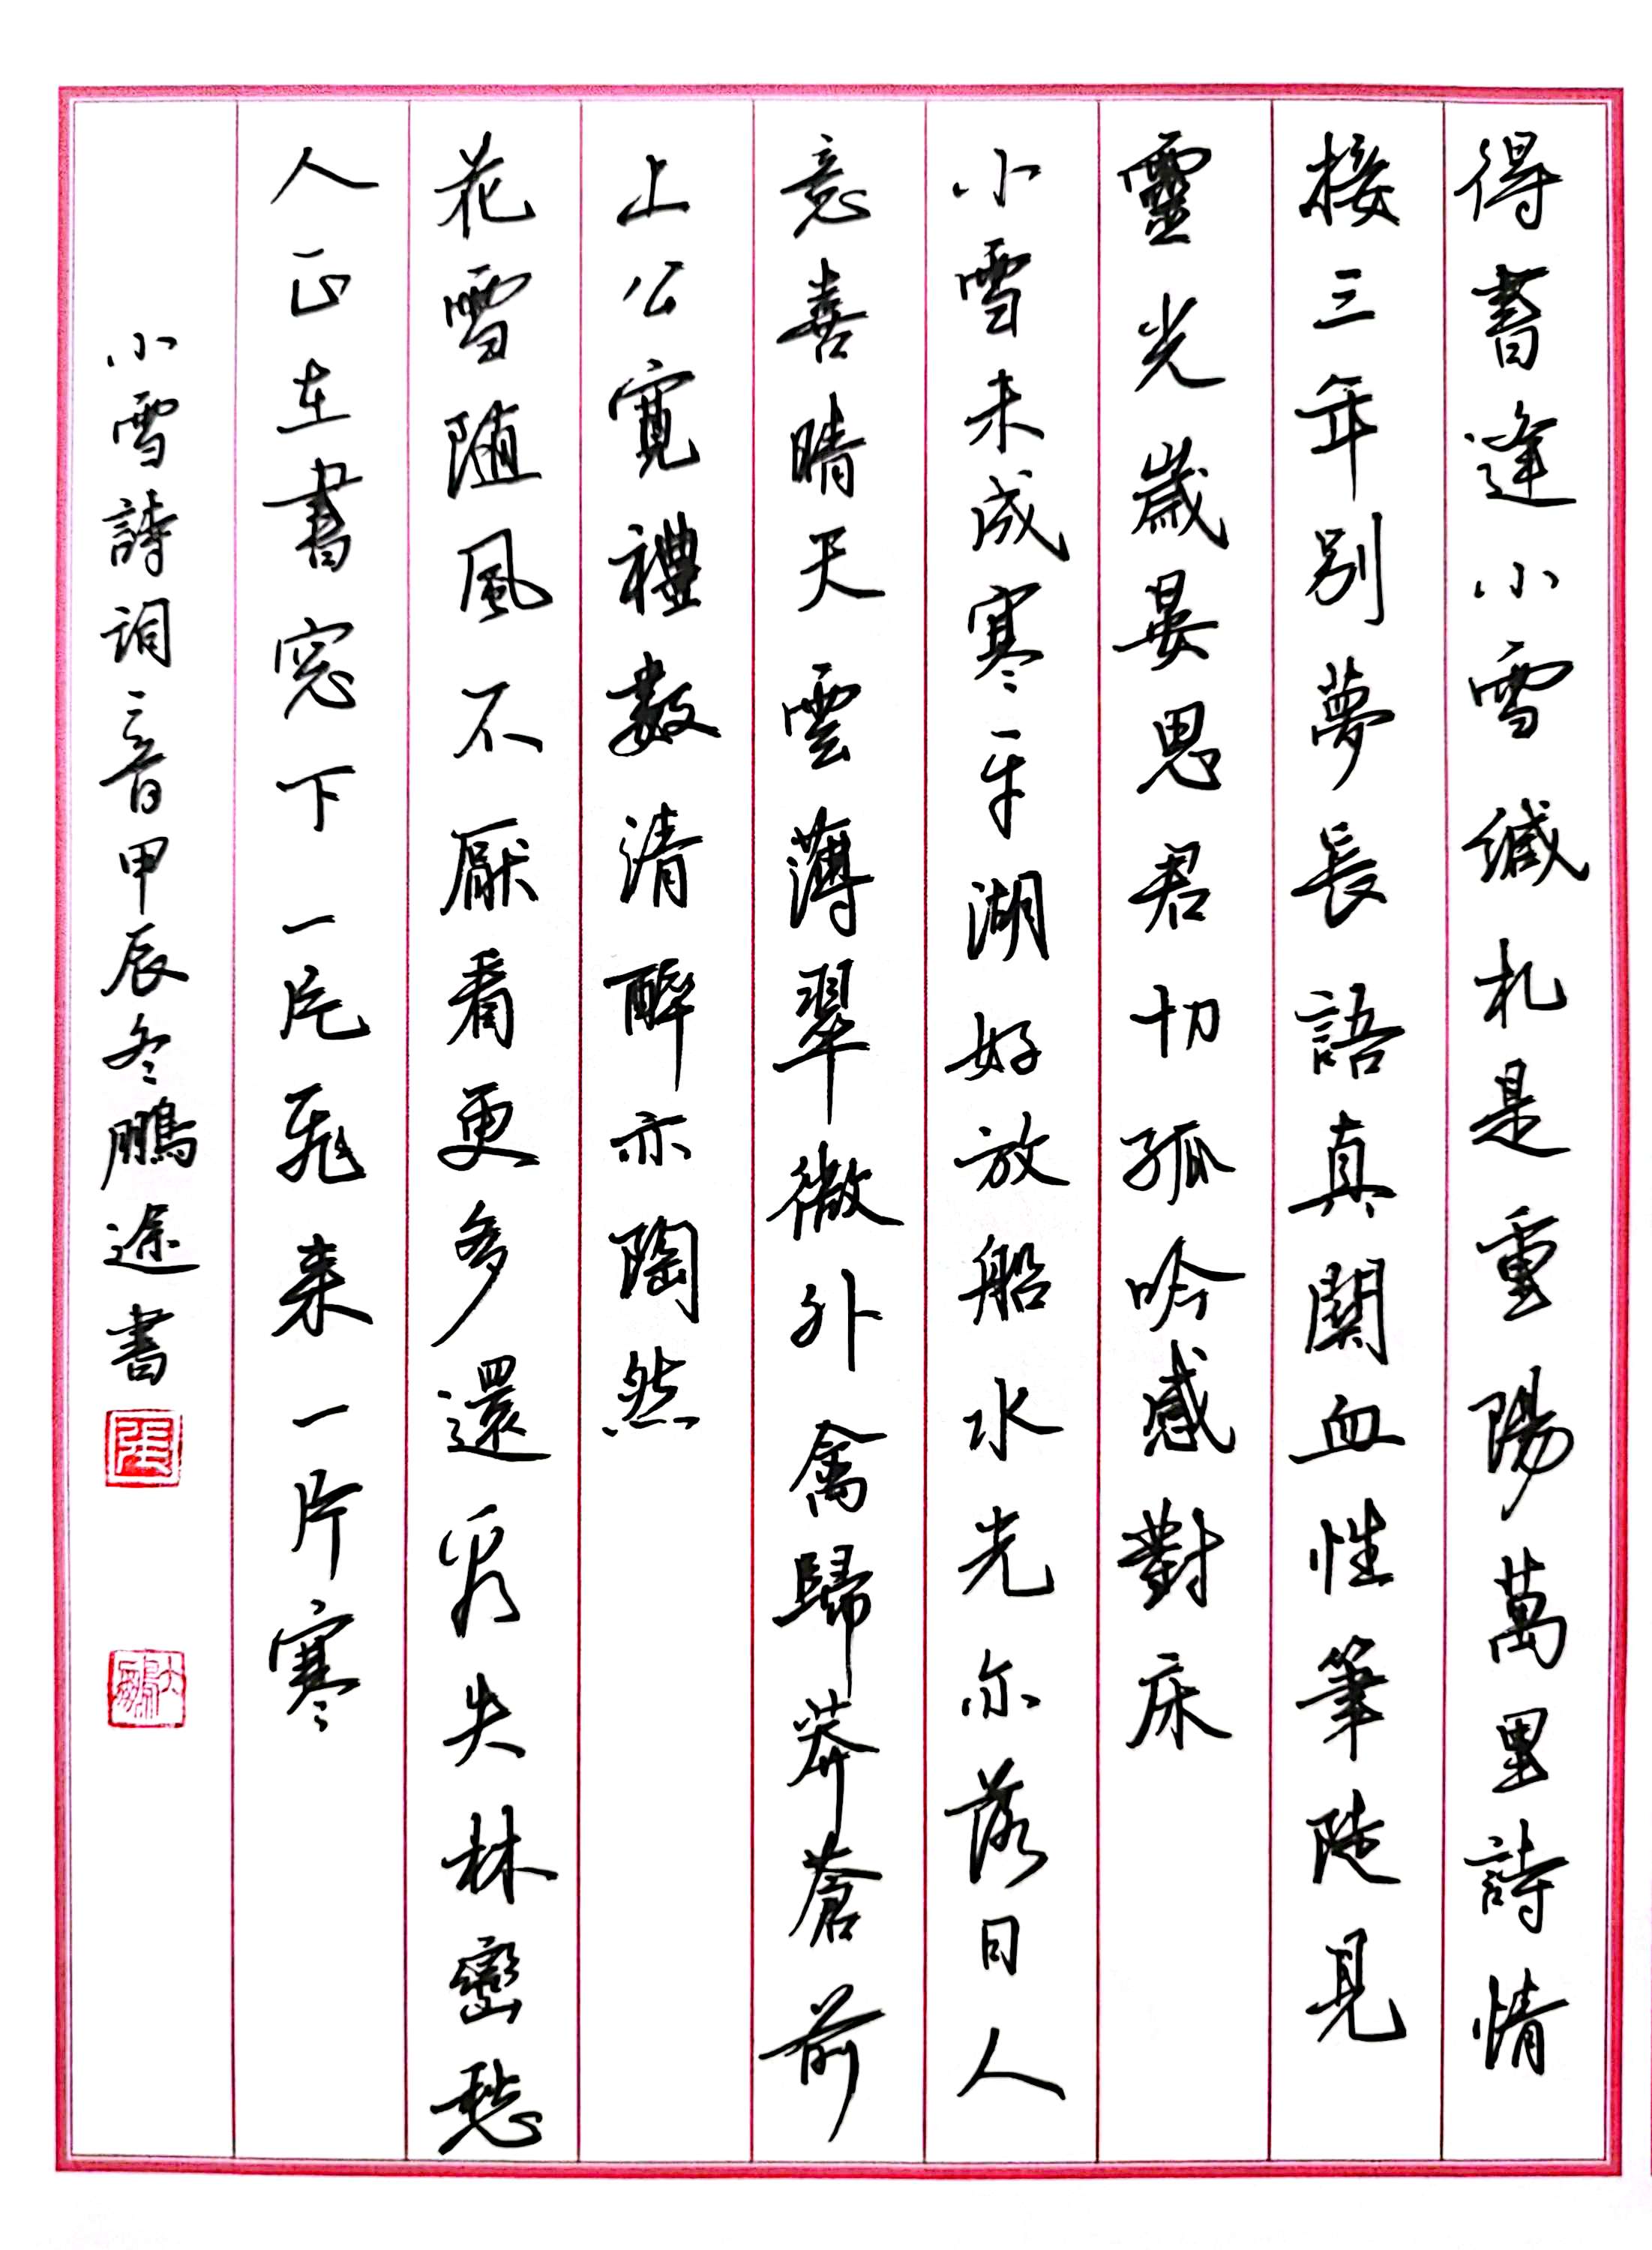 得書逢小雪緘札是重陽萬里詩情
接三年別夢長語真關血性筆陡見
靈光歲晏思君切孤吟感對床
小雪未成寒平湖好放船水光亦落日人
意喜晴天雲薄翠微外禽歸莽蒼前
上公寬禮數清醉亦陶然
花雪隨風不厭看更多還肯失林巒愁
人正在書窓下一片飛来一片寒
小雪詩詞三首甲辰冬鵬途書
張